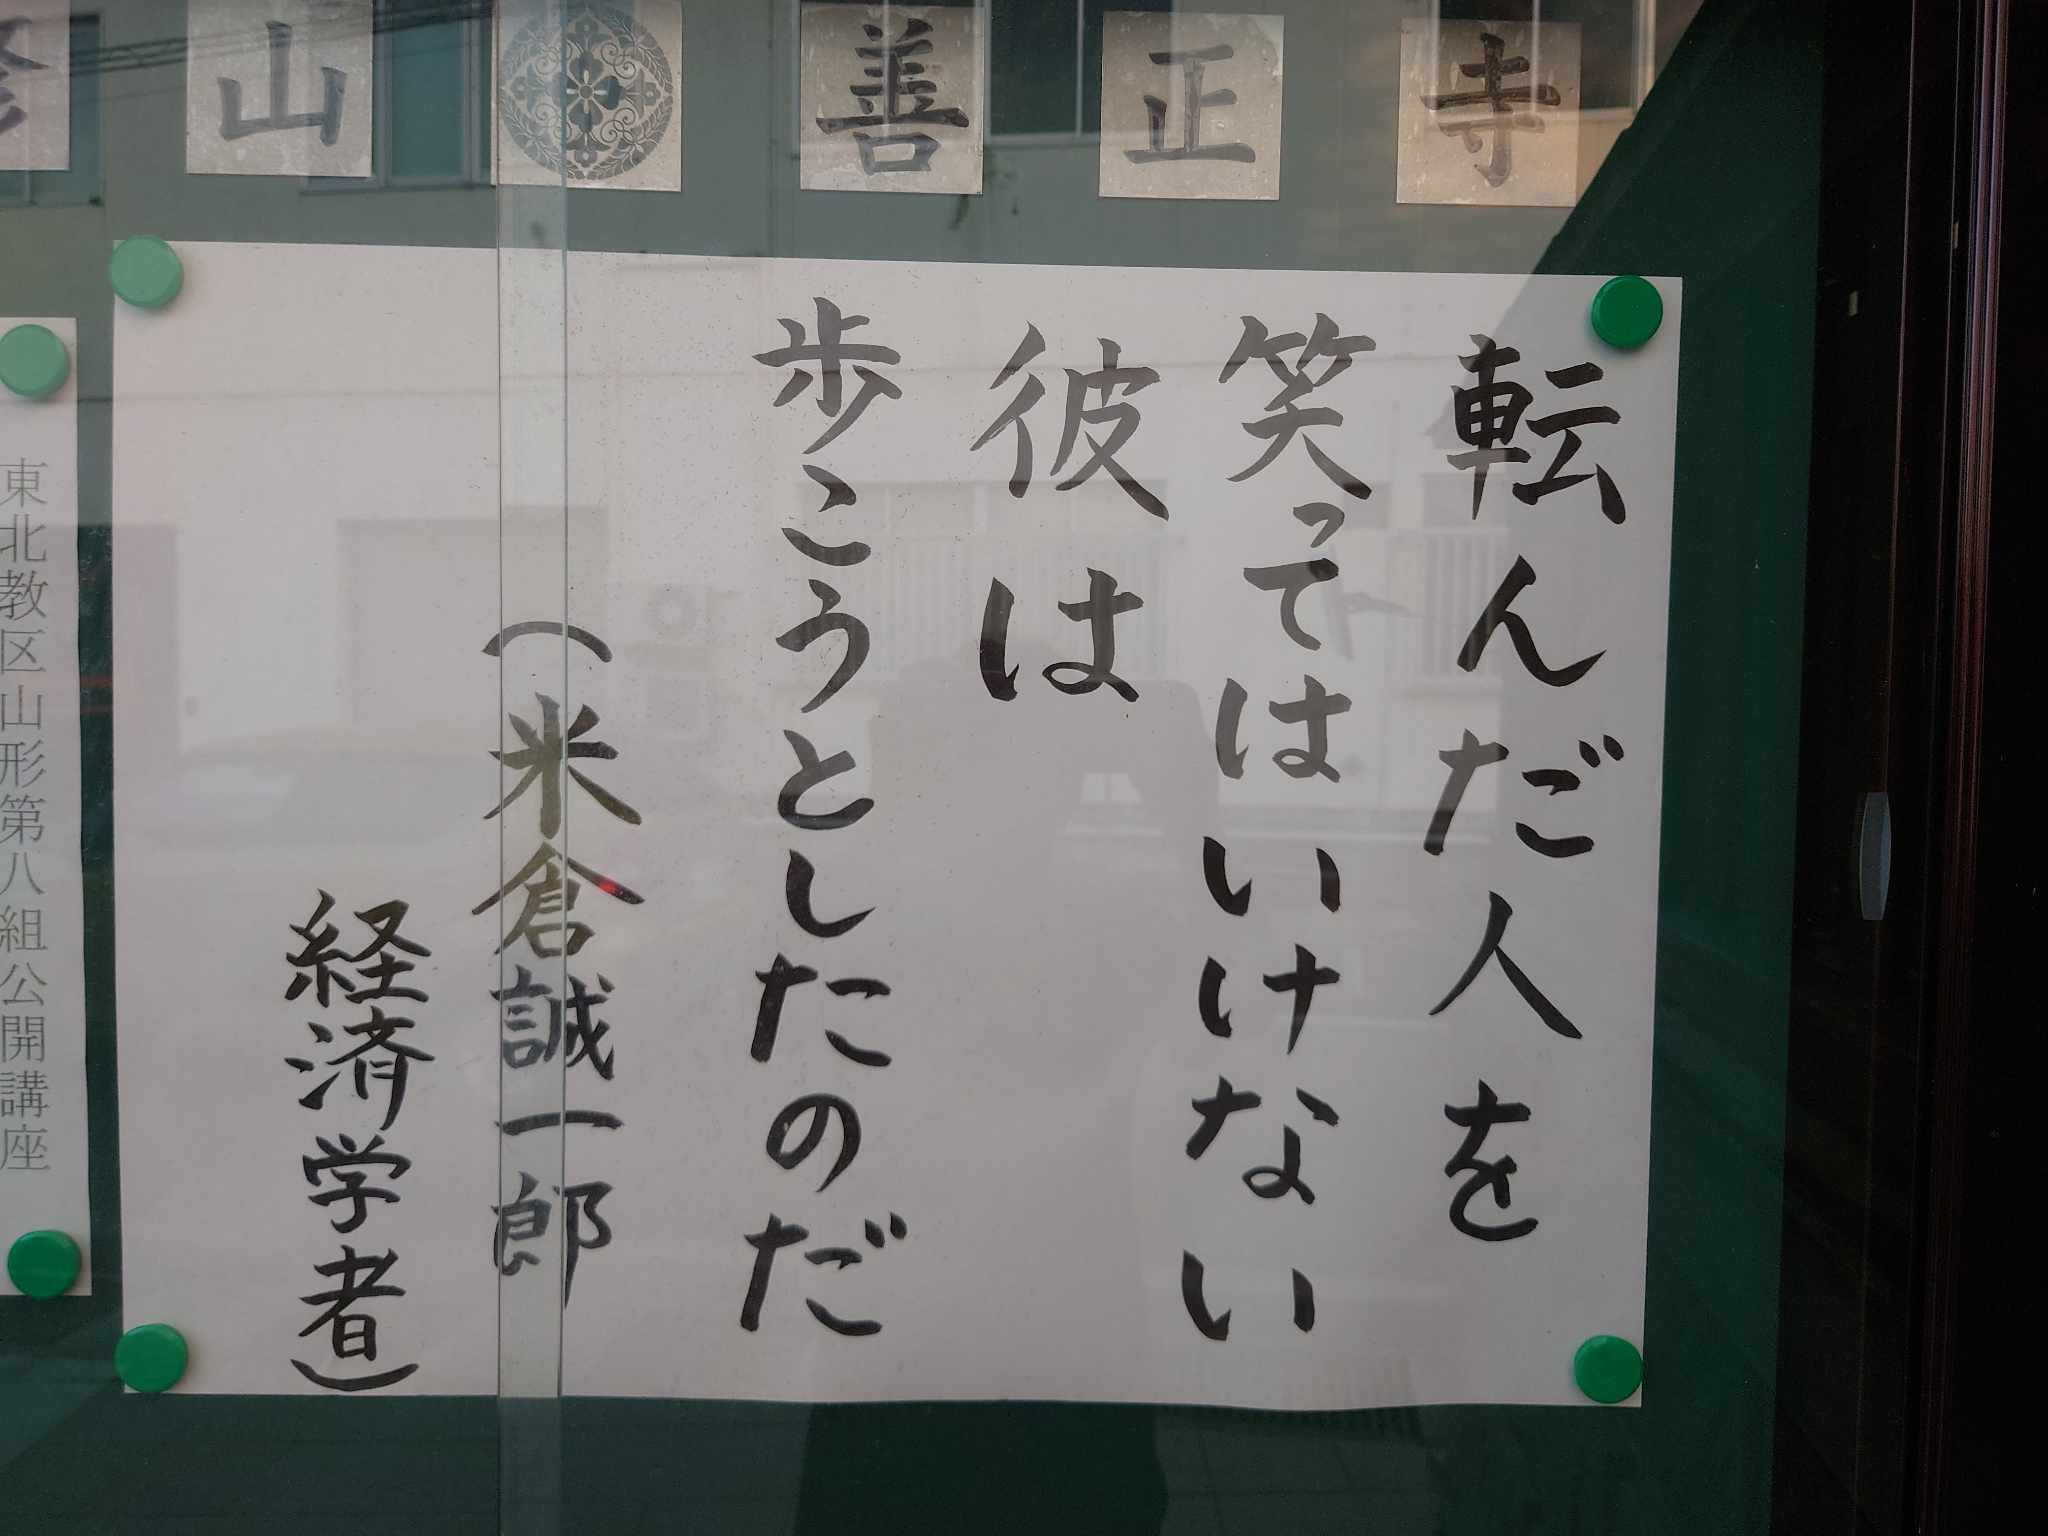 山 善正寺
転んだ人を
笑ってはいけない
彼は
歩こうとしたのだ
（米倉誠一郎
経済学者）
東北教区山形第八組公開講座